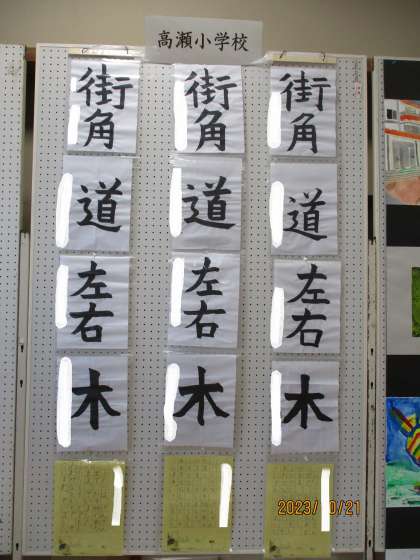 高瀬小学校
街角
街角
街角
道
道
道
左右
左右
左右
木
木
木
2023/10/21